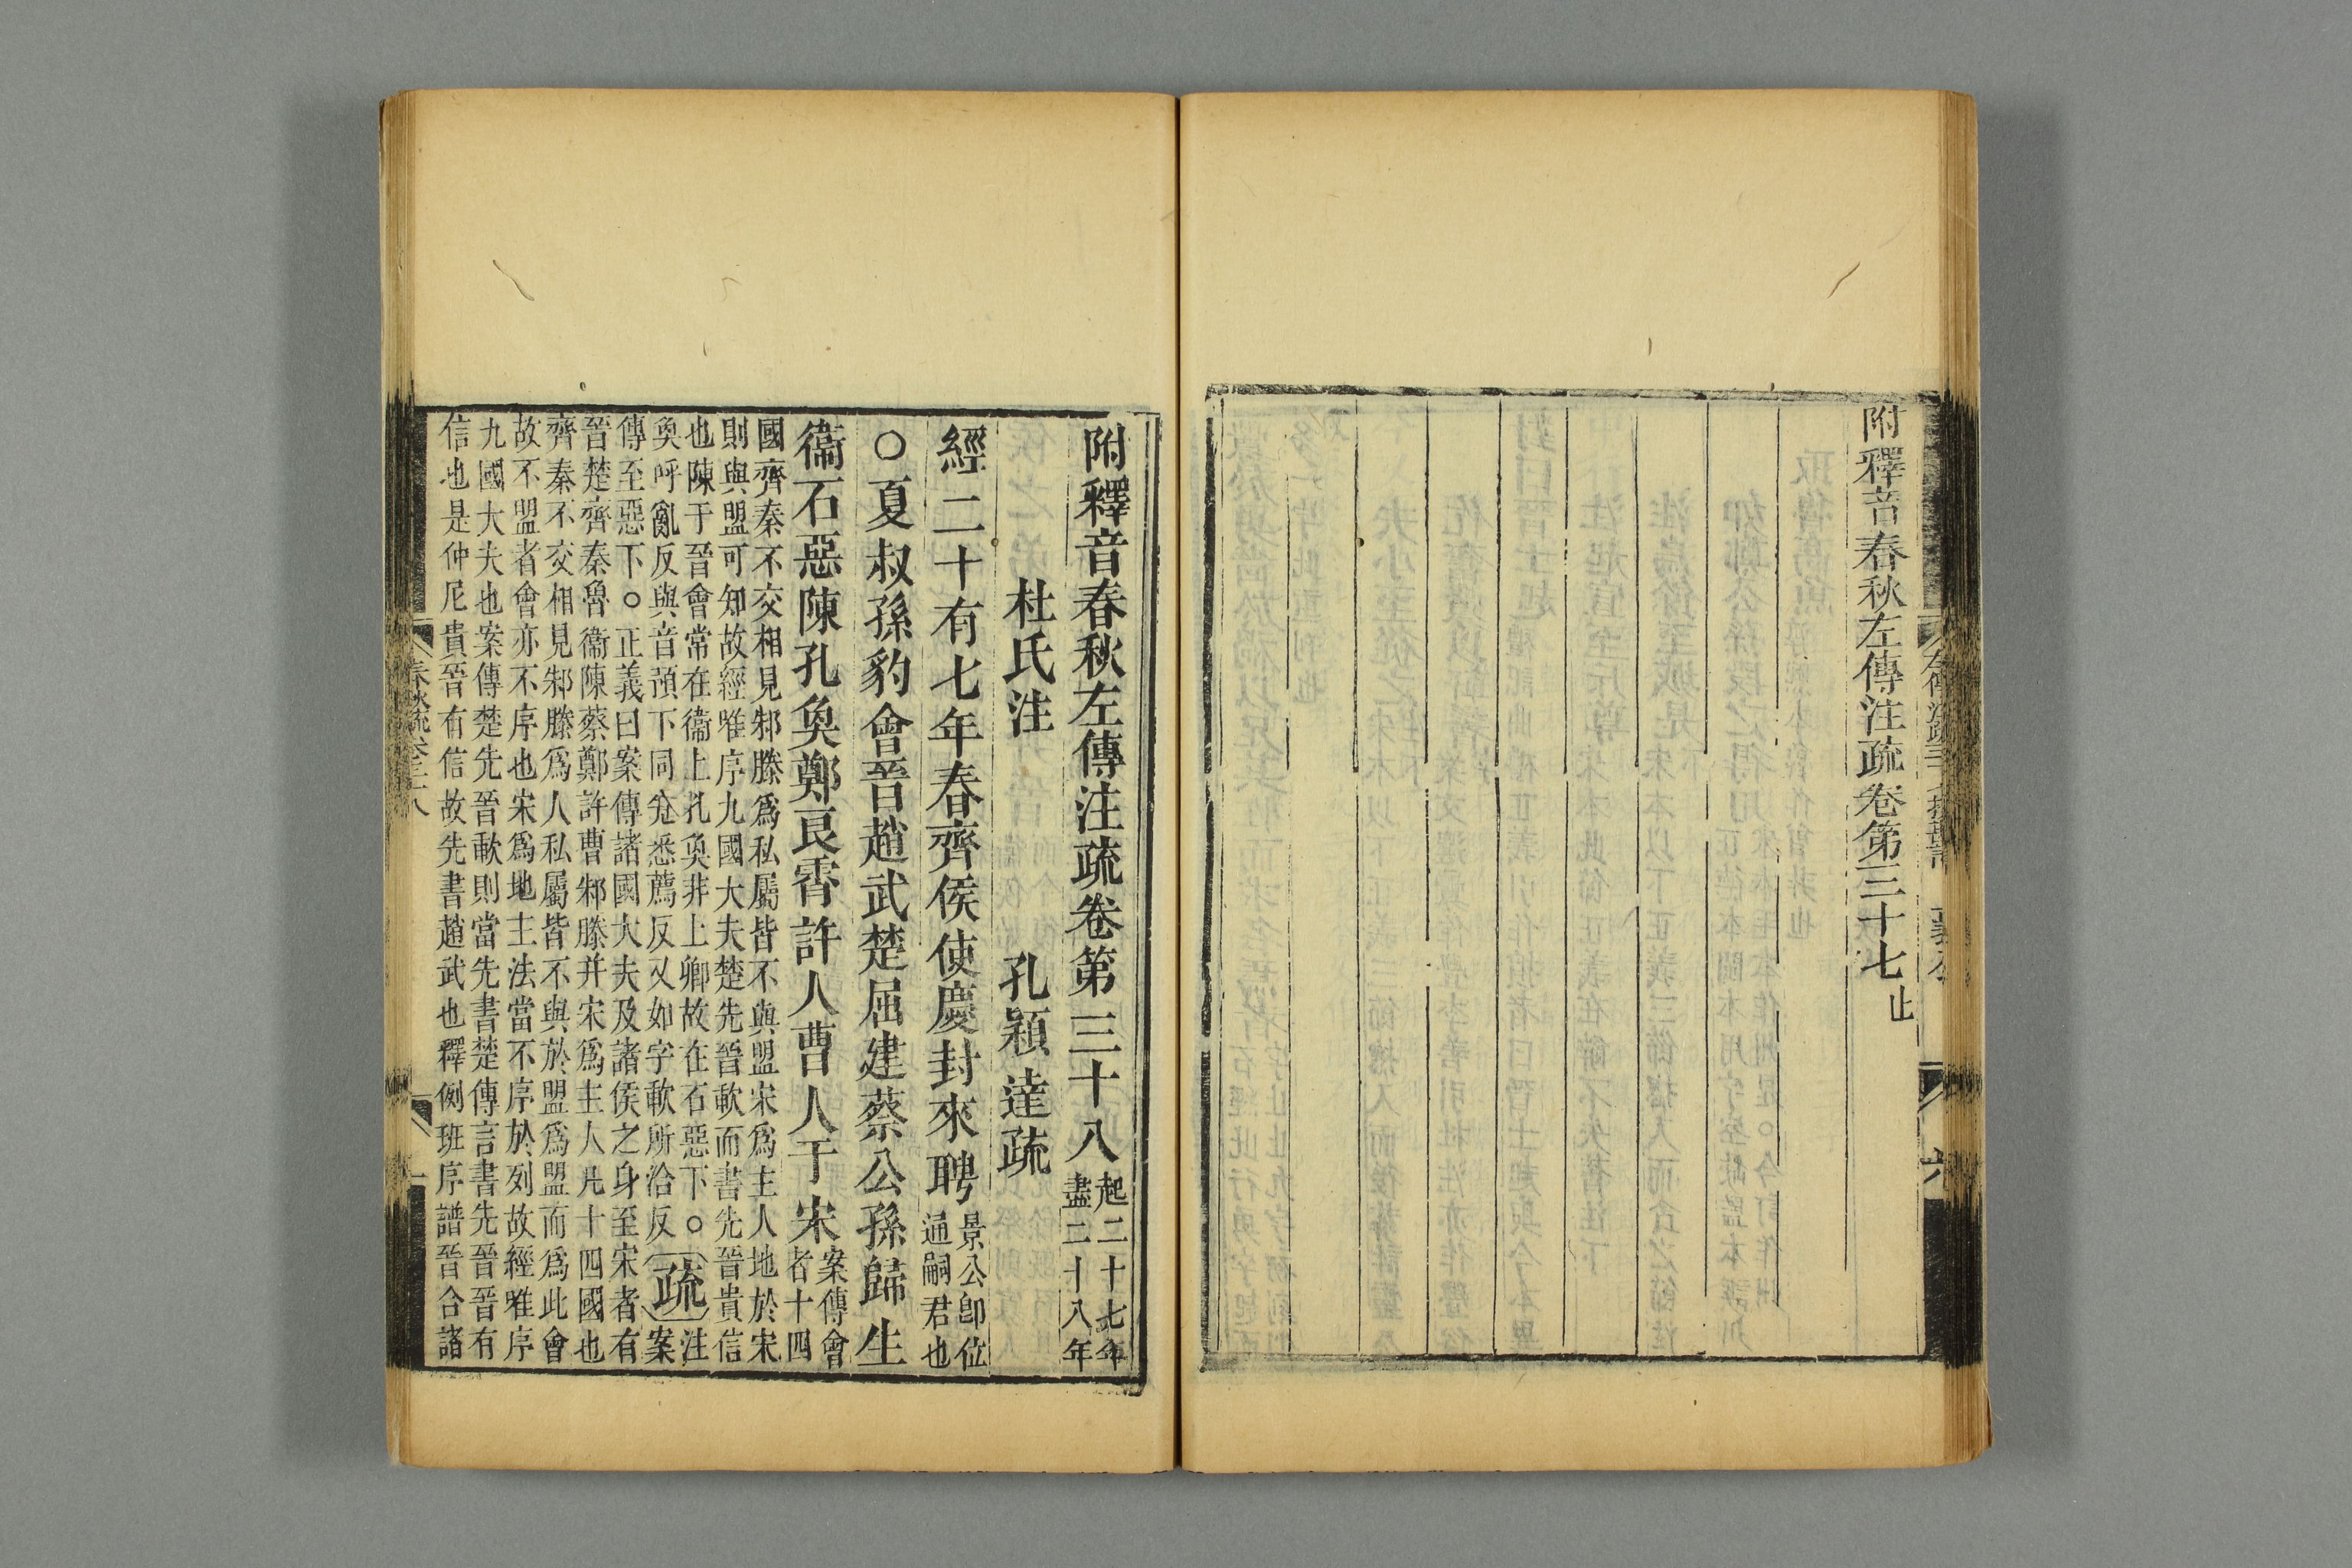 附釋音春秋左傳注疏卷第三十七止
附釋音春秋左傳注疏卷第三十八
起二十七年
盡二十八年
杜氏注 孔穎達疏
經二十有七年春齊侯使慶封來聘
景公卽位
通嗣君也
○夏叔孫豹會晉趙武楚屈建蔡公孫歸生
衞石惡陳孔奐鄭良霄許人曹人于宋
案傳會
者十四
國齊秦不交相見邾滕爲私屬皆不與盟宋爲主人地於宋
則與盟可知故經唯序九國大夫楚先晉歃而書先晉貴信
也陳于晉會常在衞上孔奐非上卿故在石惡下○
奐呼亂反與音預下同兊悉薦反又如字歃所洽反
疏
注
案
傳至惡下○正義曰案傳諸國大夫及諸侯之身至宋者有
晉楚齊秦魯衞陳蔡鄭許曹邾滕并宋爲主人凡十四國也
齊秦不交相見邾滕爲人私屬皆不與於盟爲盟而爲此會
故不盟者會亦不序也宋爲地主法當不序於列故經唯序
九國大夫也案傳楚先晉歃則當先書楚傳言書先晉晉有
信也是仲尼貴晉有信故先書趙武也釋例班序譜晉合諸
春秋疏卷三十八
一